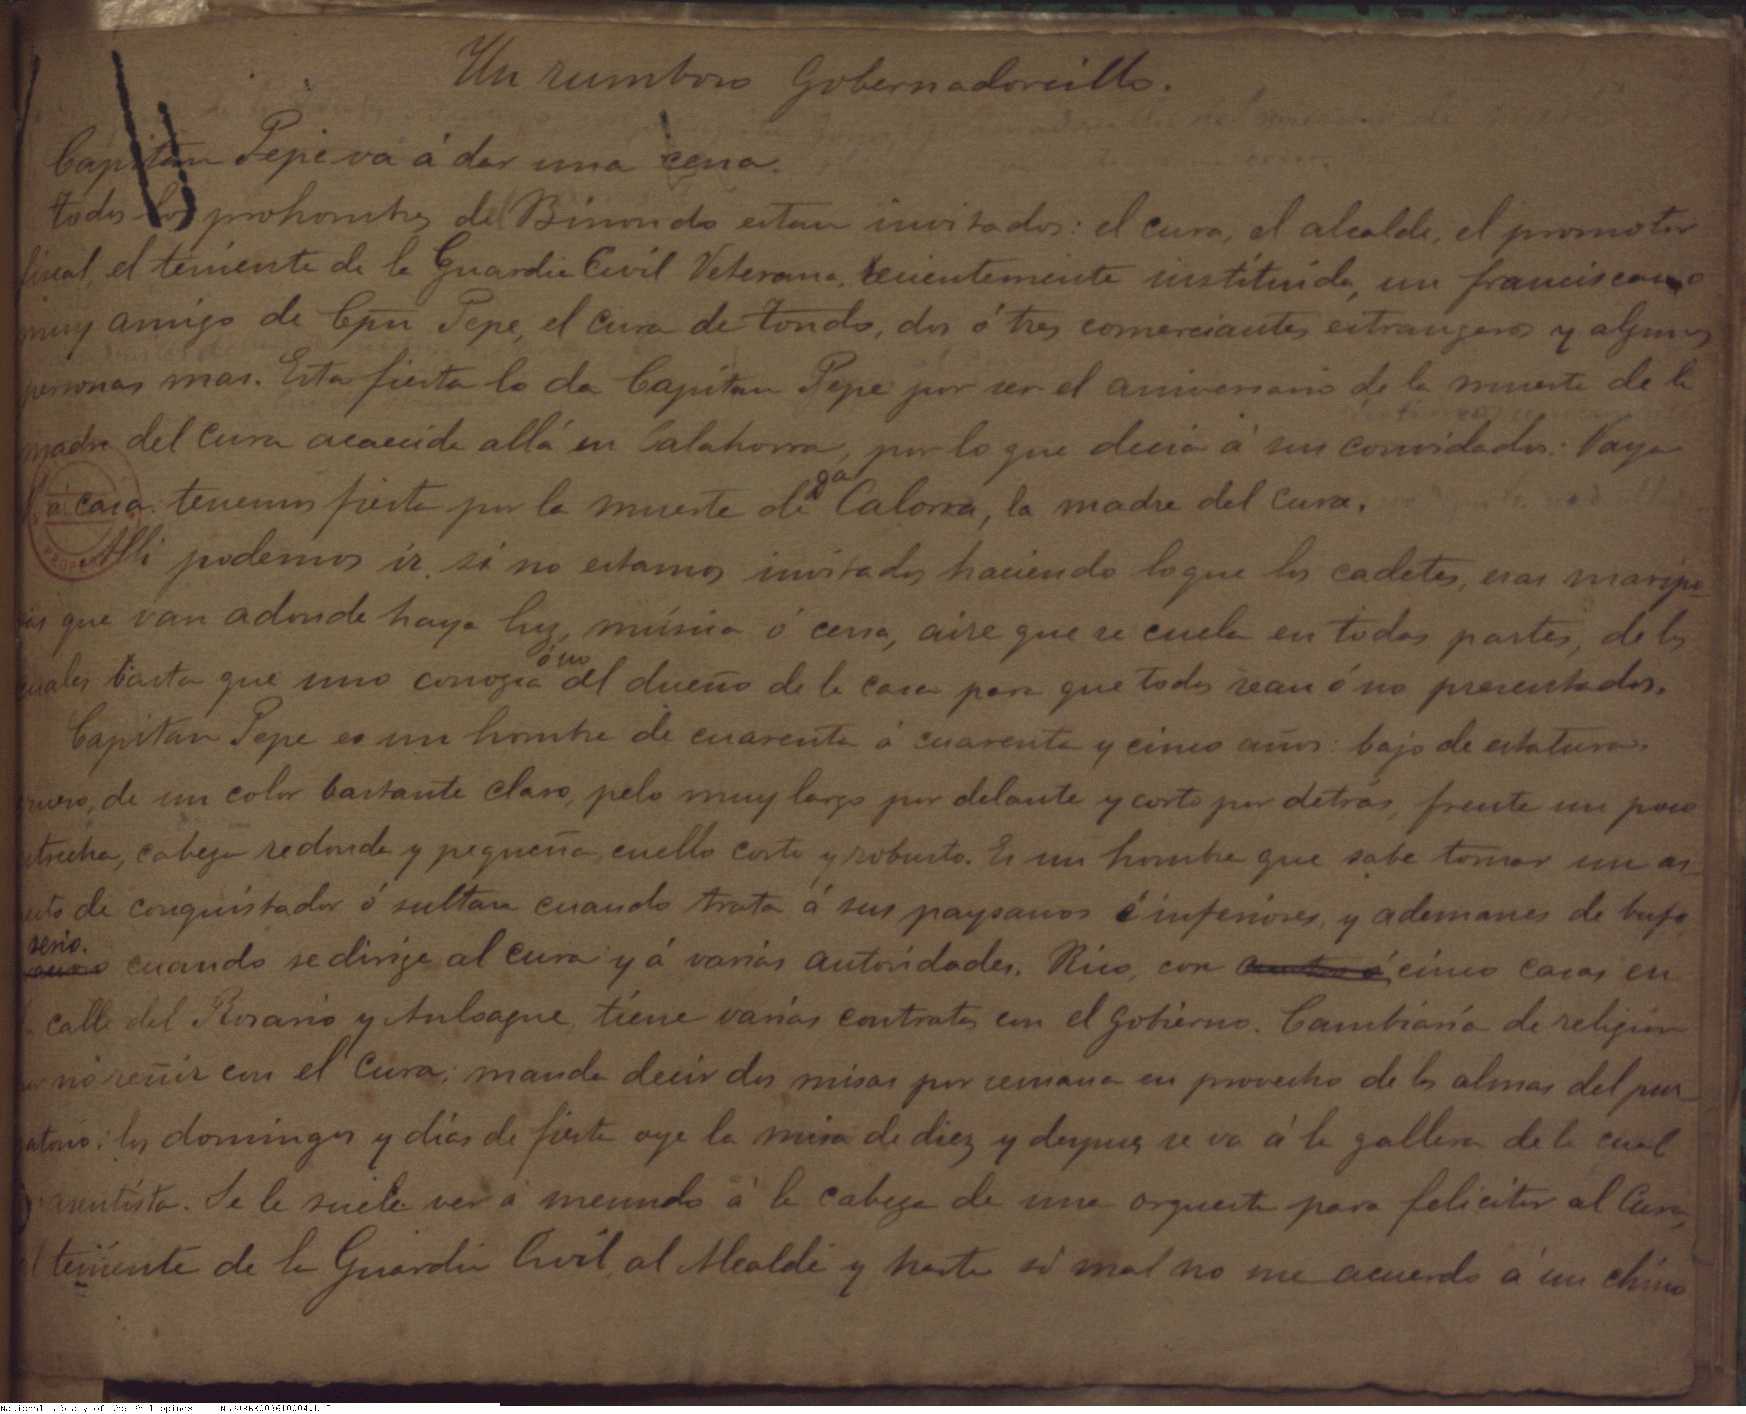 Un rumboso Gobernadorcillo.
Capitan Pepe va á dar una cena.
todos los prohombres de Binondo estan invitados: el cura, el alcalde, el promotor
fiscal, el teniente de la Guardia Civil Veterana, recientemente instituida, un franciscano
muy amigo de Cpn Pepe, el cura de Tondo, dos ó tres comerciantes estrangeros y algunas
personas mas. Esta fiesta la da Capitan Pepe por ser el aniversario de la muerte de la
madre del cura acaecida allá en Calahorra, por lo que decia á sus convidados: Vaya
á casa: tenemos fiesta por la muerte de Dª Calorra, la madre del cura.
Alli podemos ir, si no estamos invitados haciendo lo que los cadetes, esas maripo-
sas que van adonde haya luz, música ó cena, aire que se cuela en todas partes, de los
cuales basta que uno conozca ó no al dueño de la casa para que todos sean ó no presentados.
Capitan Pepe es un hombre de cuarenta á cuarenta y cinco años: bajo de estatura,
grueso, de un color bastante claro, pelo muy largo por delante y corto por detrás, frente un poco
estrecha, cabeza redonda y pequeña, cuello corto y robusto. Es un hombre que sabe tomar un as-
pecto de conquistador ó sultan cuando trata á sus paysanos é inferiores, y ademanes de bufo
serio cuando se dirige al cura y á varias autoridades. Rico, con cinco casas en
calle del Rosario y Anloague, tiene varias contratas con el Gobierno. Cambiaría de religion
por nó reñir con el Cura; manda decir dos misas por semana en provecho de las almas del pur-
gatorio: los domingos y días de fiesta oye la misa de diez y despues se va á la gallera de la cual
asentista. Se le suele ver á menudo á la cabeza de una orquesta para felicitar al Cura,
al teniente de la Guardia Civil, al Alcalde y hasta si mal no me acuerdo á un chino